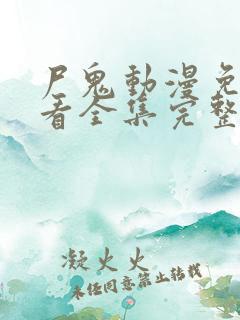 尸鬼動漫免
看全集完整
凝火火
未经同意禁止转载